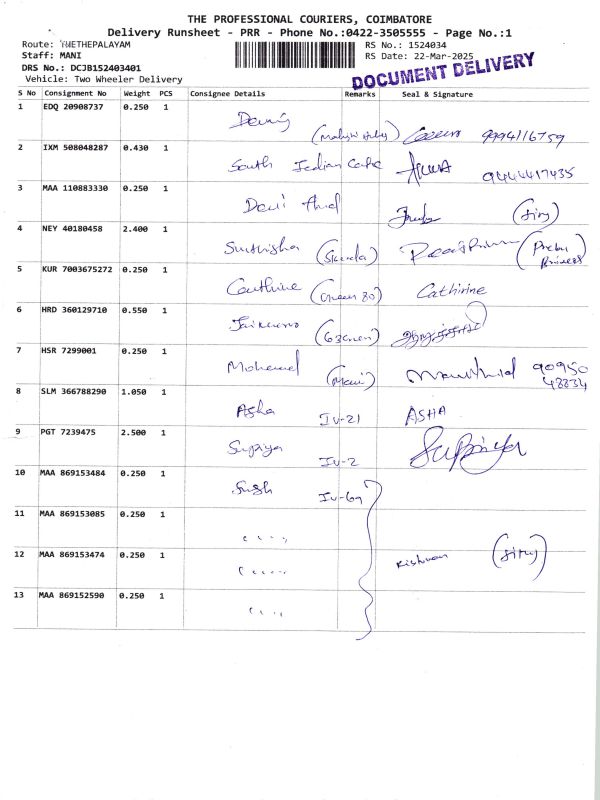 THE PROFESSIONAL COURIERS, COIMBATORE
Delivery Runsheet - PRR - Phone No.:0422-3505555 - Page No.:1
Route: THETHEPALAYAM RS No.: 1524034
Staff: MANI RS Date: 22-Mar-2025
DRS No.: DCJB152403401
Vehicle: Two Wheeler Delivery
DOCUMENT DELIVERY
S No Consignment No Weight PCS Consignee Details Remarks Seal & Signature
1 EDQ 20908737 0.250 1 9994116759
2 IXM 508048287 0.430 1 South Indian Cafe 9444417435
3 MAA 110883330 0.250 1 Devi
4 NEY 40180458 2.400 1
5 KUR 7003675272 0.250 1 (Green 80) Cathirine
6 HRD 360129710 0.550 1
7 HSR 7299001 0.250 1 Mohamed (Mani) 90950
48834
8 SLM 366788290 1.050 1 Asha IV-21 ASHA
9 PGT 7239475 2.500 1 Supriya IV-2 Supriya
10 MAA 869153484 0.250 1 IV-69
11 MAA 869153085 0.250 1 " "
12 MAA 869153474 0.250 1 " " Kishvan
13 MAA 869152590 0.250 1 " "